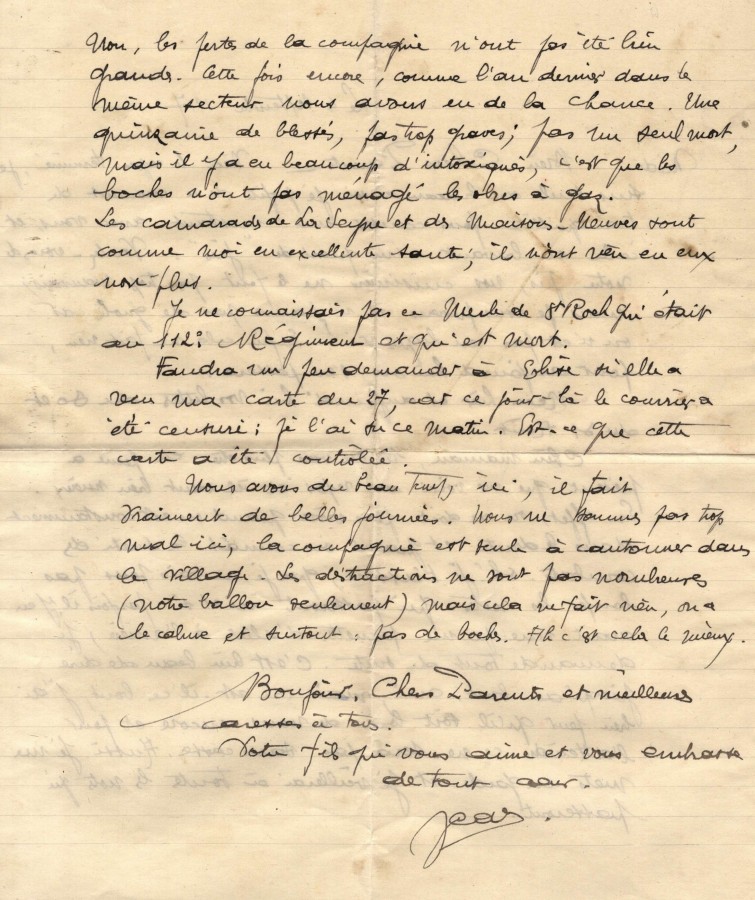 Non, les pertes de la compagnie n'ont pas été bien
grandes. Cette fois encore, comme l'an dernier dans le
même secteur nous avons eu de la chance. Une
quinzaine de blessés, pas trop graves; pas un seul mort,
mais il y a eu beaucoup d'intoxiqués, c'est que les
boches n'ont pas ménagé les obus à gaz.
Les camarades de La Seyne et des Maisons-Neuves sont
comme moi en excellente santé; il n'ont rien eu eux
non-plus.
Je ne connaissais pas ce Merle de St Roch qui était
au 112e Régiment et qui est mort.
Faudra un peu demander à si elle a
reçu ma carte du 27, car ce jour-là le courrier a
été censuré; je l'ai su ce matin. Est-ce que cette
carte a été contrôlée.
Nous avons du beau Temps, ici, il fait
vraiment de belles journées. Nous ne sommes pas trop
mal ici, la compagnie est seule à cantonner dans
le village. Les distractions ne sont pas nombreuses
(notre ballon seulement) mais cela ne fait rien, on a
le calme et surtout: pas de boches. Et c'est cela le mieux.
Bonjour, Chers Parents et meilleures
caresses à tous.
Votre fils qui vous aime et vous embrasse
de tout cœur.